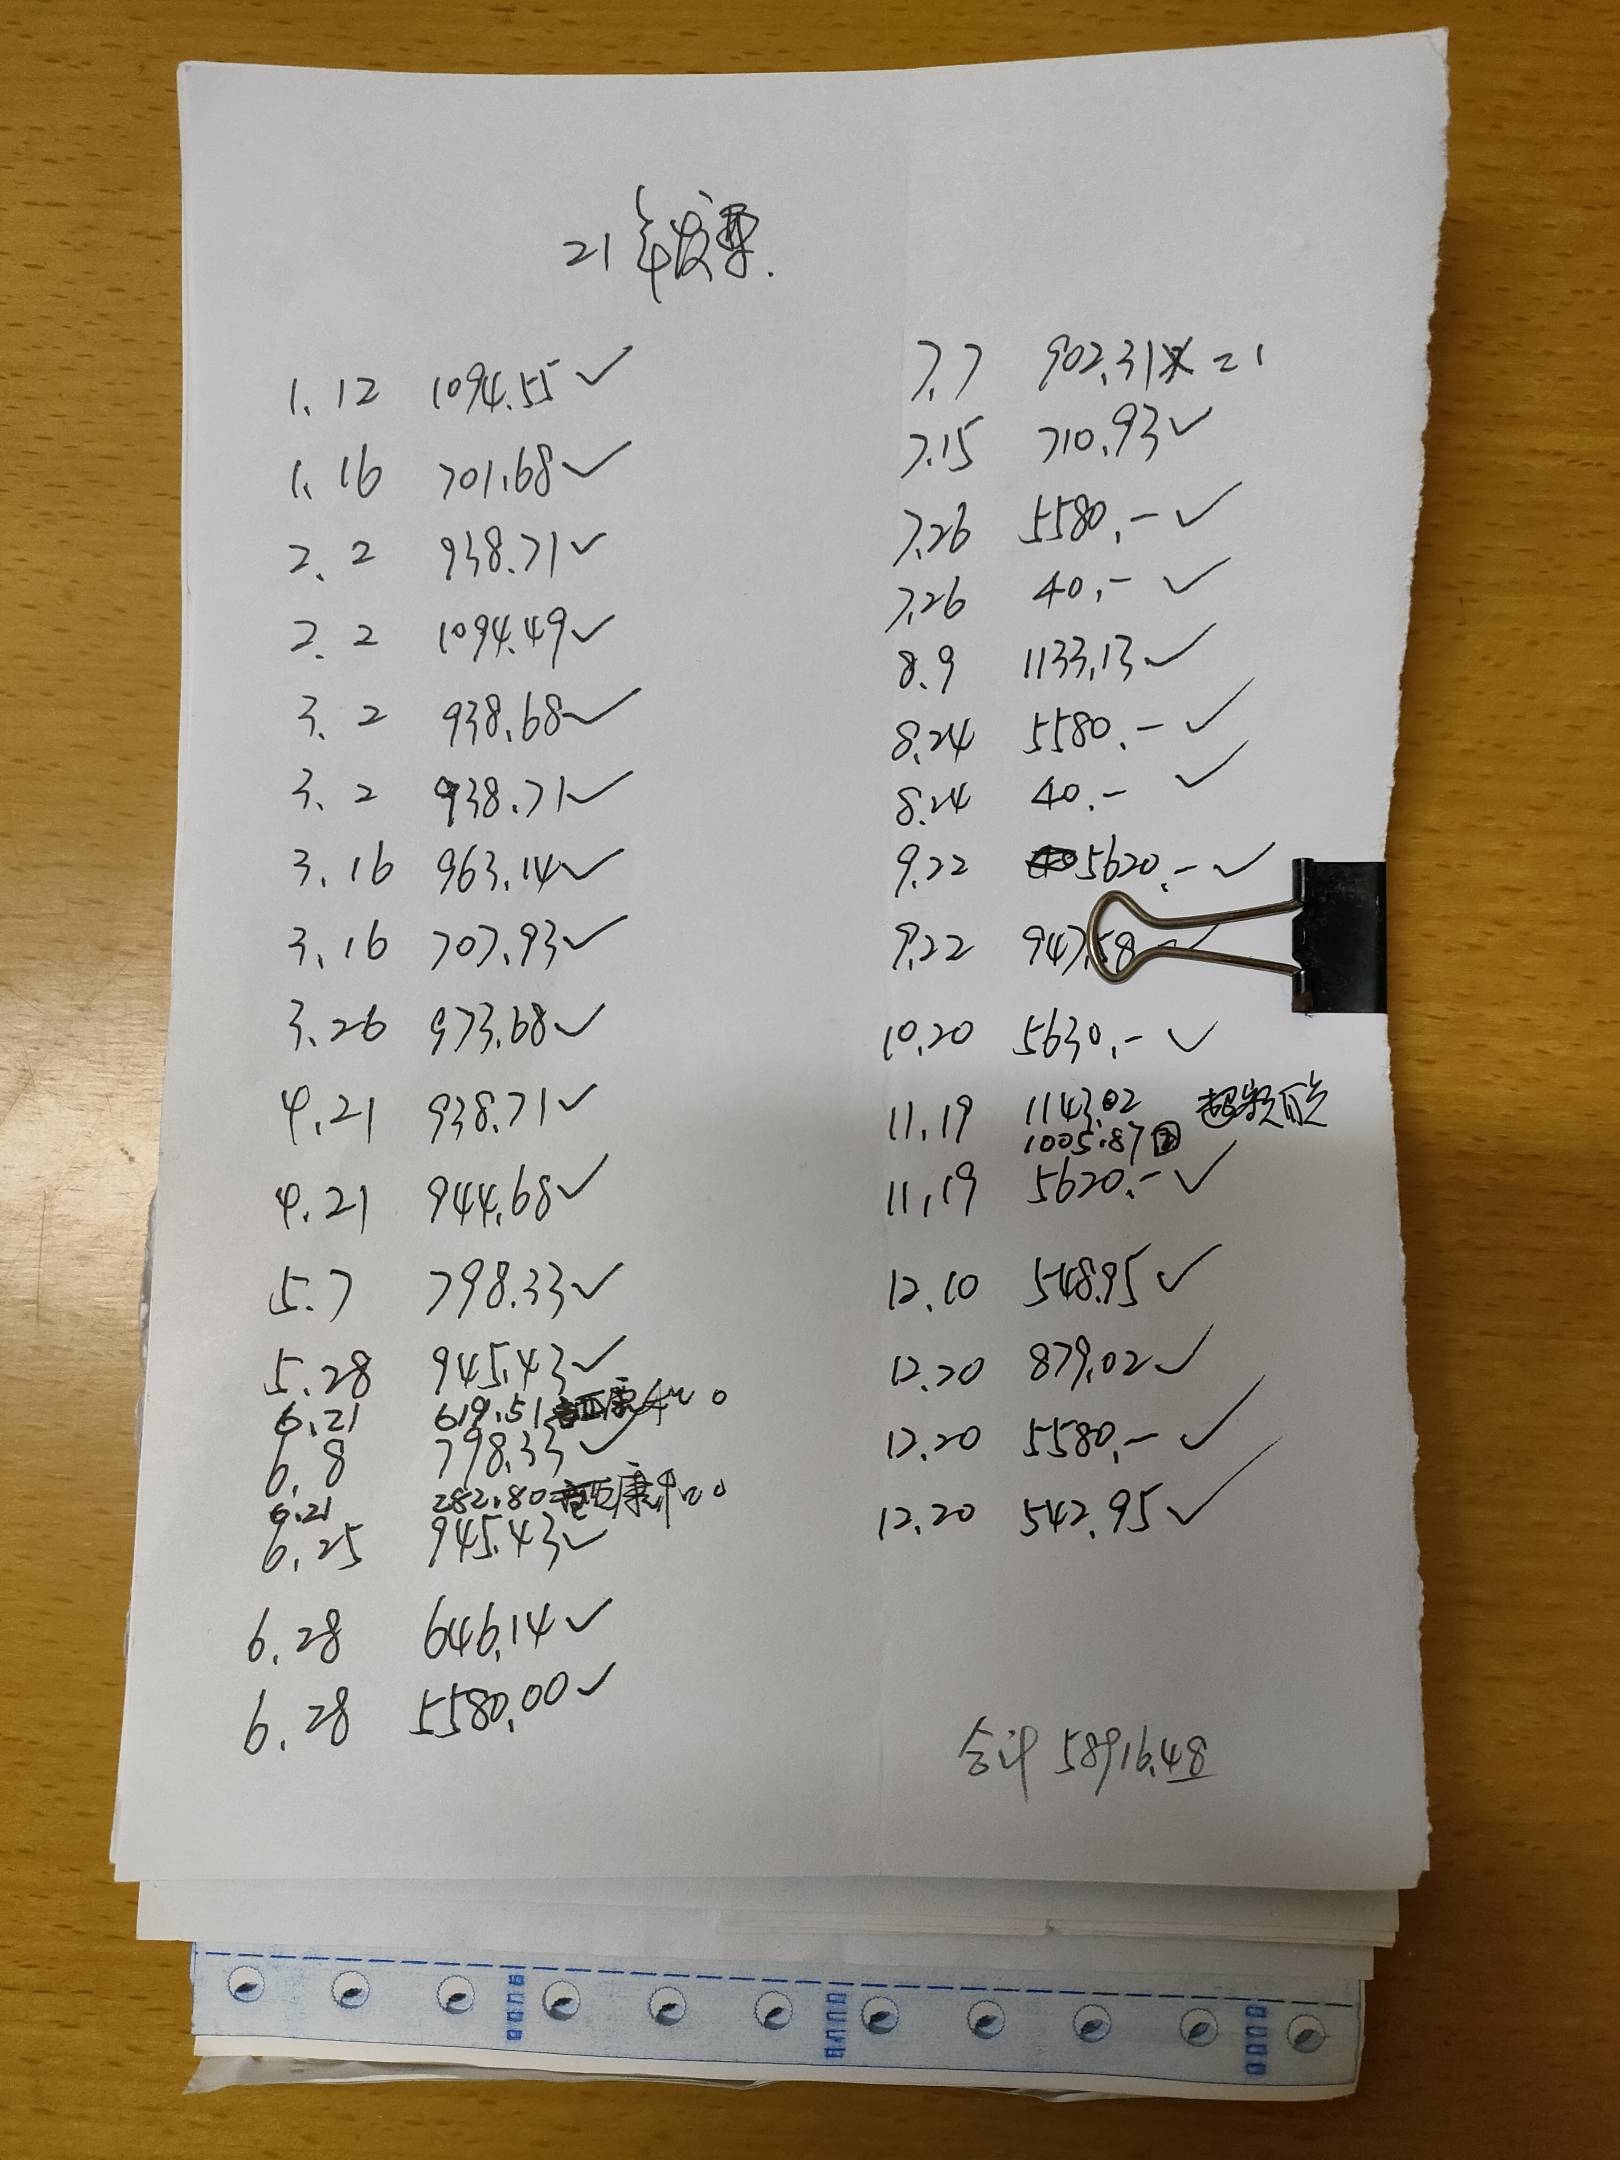 21年发票.
1.12 1094.55✓
1.16 701.68✓
2.2 938.71✓
2.2 1094.49✓
3.2 938.68✓
3.2 938.71✓
3.16 963.14✓
3.16 707.93✓
3.26 973.68✓
4.21 938.71✓
4.21 944.68✓
5.7 798.33✓
5.28 945.43✓
6.21 619.51
6.8 798.33✓
6.21 282.80
6.25 945.43✓
6.28 646.14✓
6.28 5580.00✓
7.7 902.31
7.15 710.93✓
7.26 5580.-✓
7.26 40.-✓
8.9 1133.13✓
8.24 5580.-✓
8.24 40.-✓
9.22 5620.-✓
9.22 947.58✓
10.20 5630.-✓
11.19 1143.02
1005.87
11.19 5620.-✓
12.10 548.95✓
12.20 879.02✓
12.20 5580.-✓
12.20 542.95✓
合计 58916.48